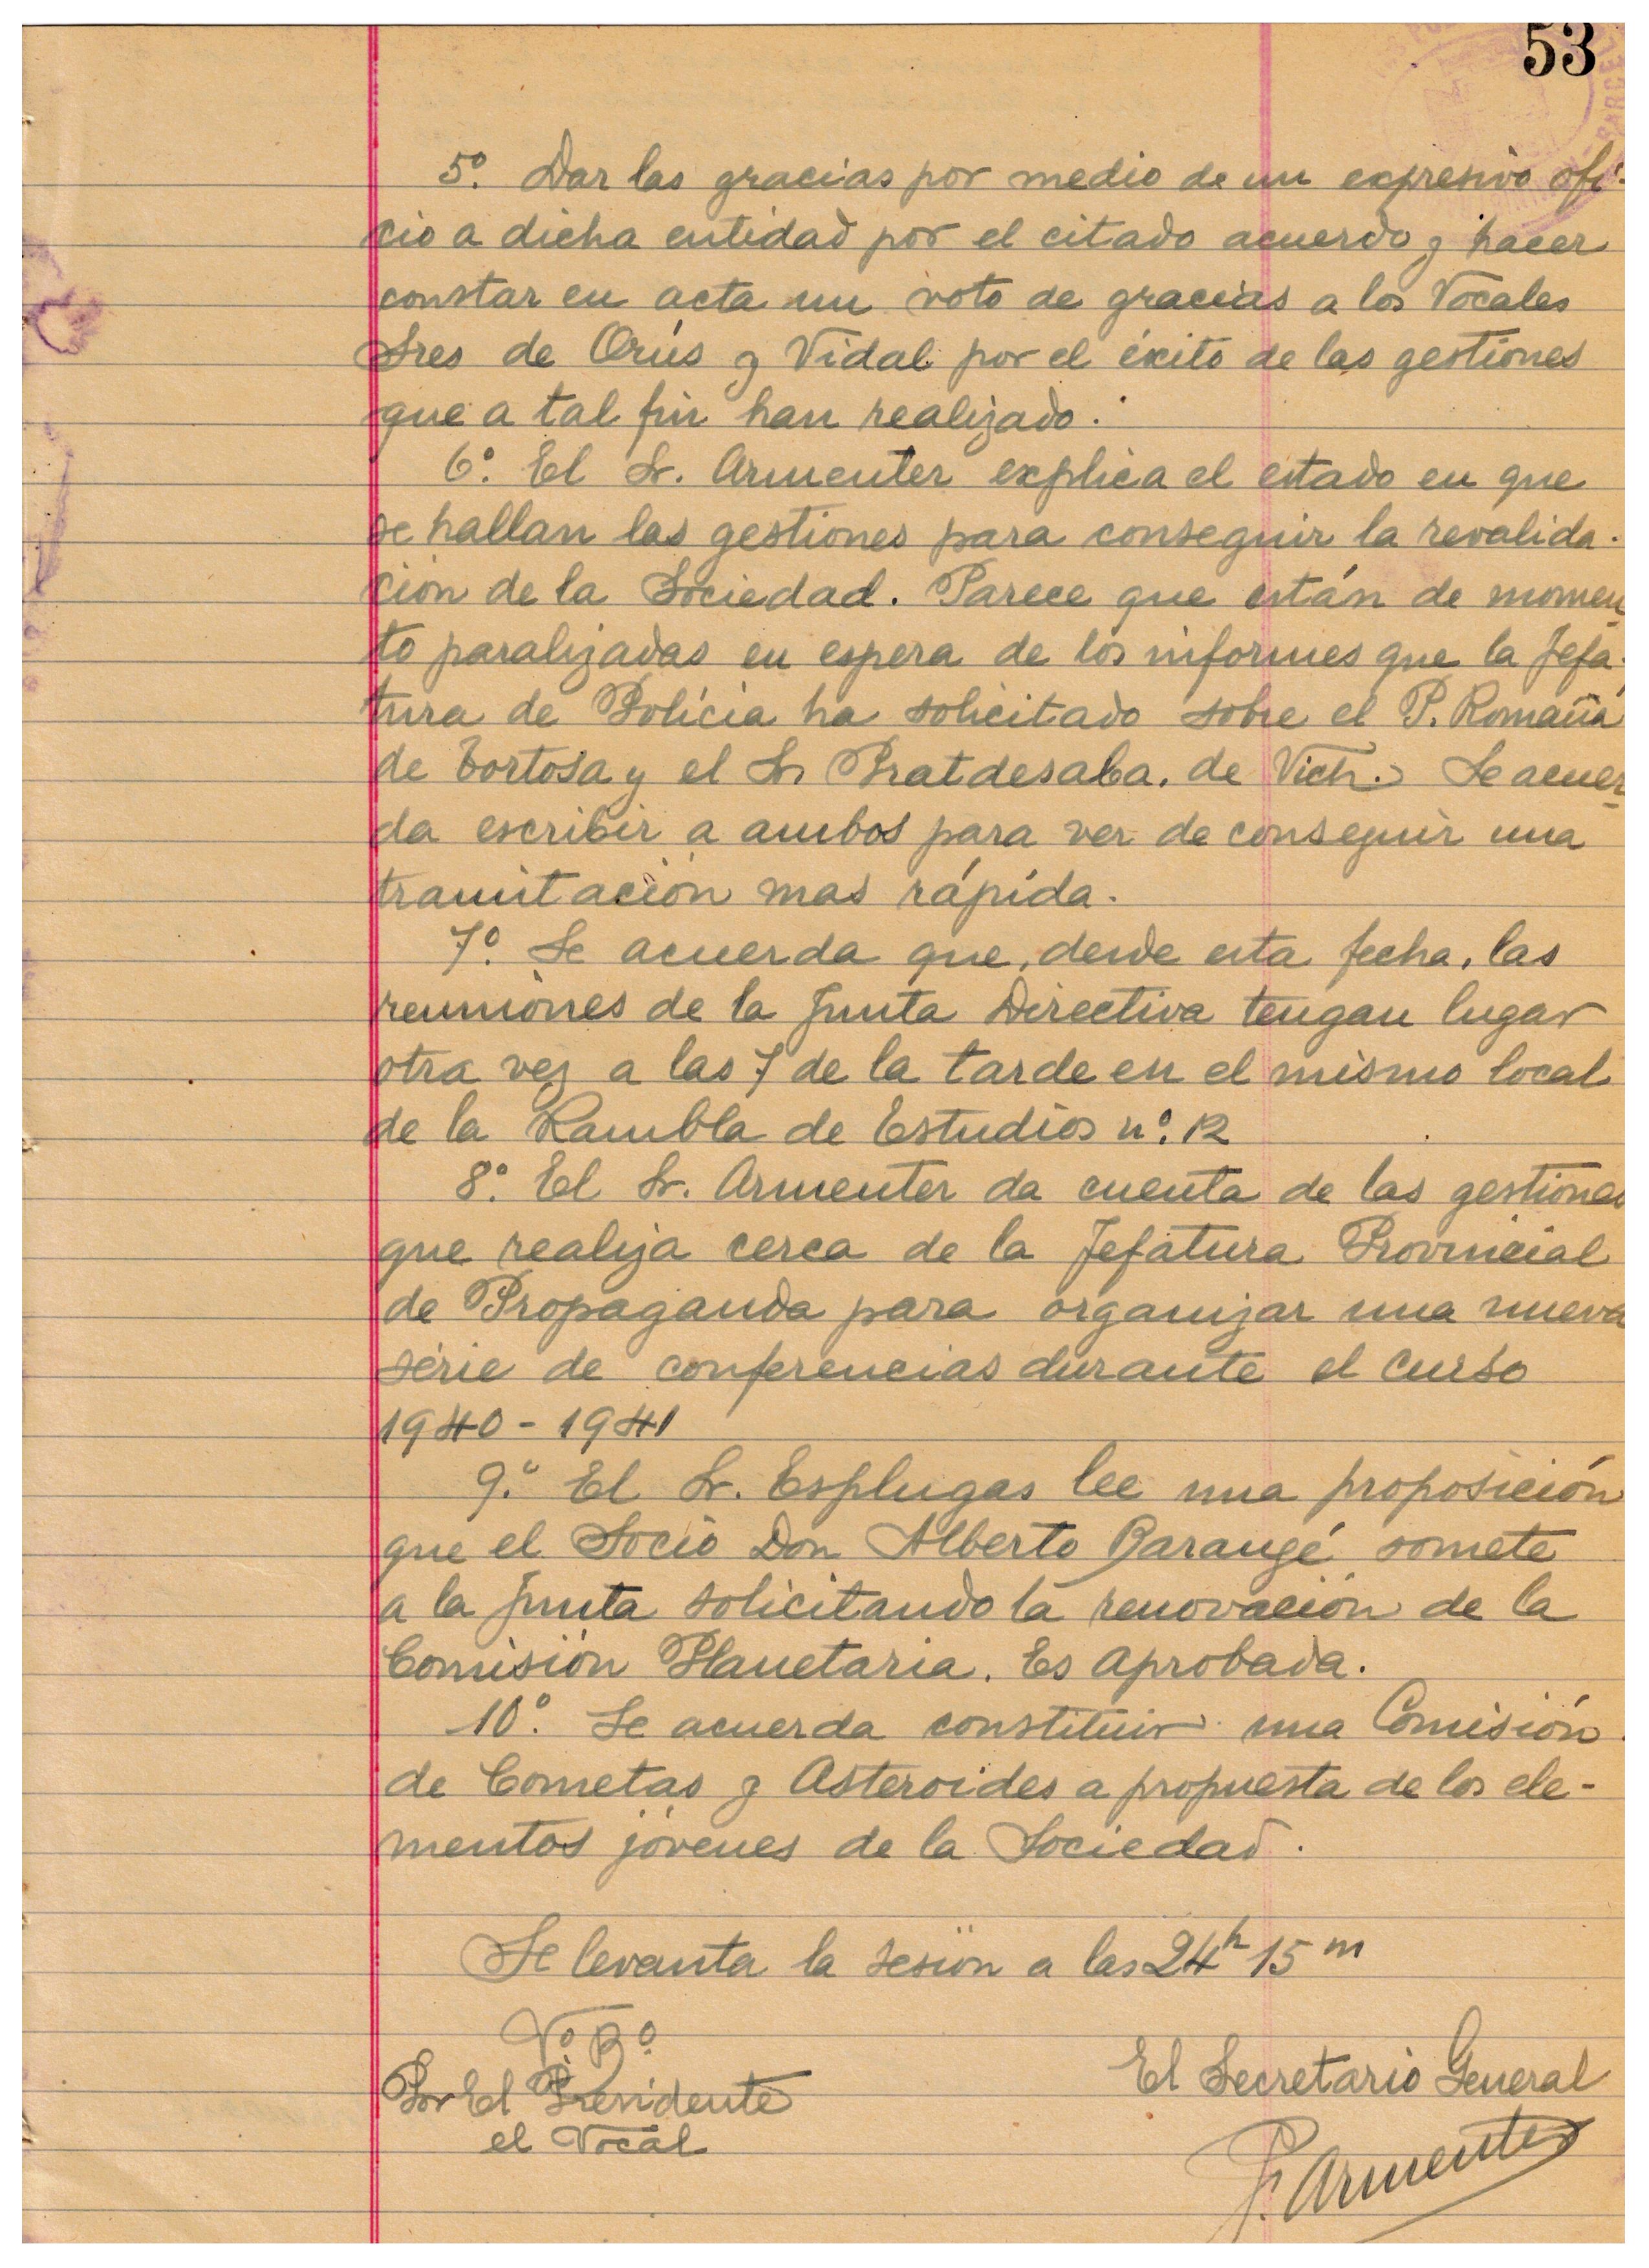 53
5º. Dar las gracias por medio de un expresivo ofi-
cio a dicha entidad por el citado acuerdo y hacer
constar en acta un voto de gracias a los Vocales
Sres de Orús y Vidal por el éxito de las gestiones
que a tal fin han realizado.
6º. El Sr. Armenter explica el estado en que
se hallan las gestiones para conseguir la revalida-
ción de la Sociedad. Parece que están de momen
to paralizadas en espera de los informes que la Jefa-
tura de Policía ha solicitado sobre el P. Romañá
de Tortosa y el Sr Pratdesaba, de Vich. Se acuer
da escribir a ambos para ver de conseguir una
tramitación mas rápida.
7º. Se acuerda que, desde esta fecha, las
reuniones de la Junta Directiva tengan lugar
otra vez a las 7 de la tarde en el mismo local
de la Rambla de Estudios nº. 12
8º. El Sr. Armenter da cuenta de las gestiones
que realiza cerca de la Jefatura Provincial
de Propaganda para organizar una nueva
série de conferencias durante el curso
1940-1941
9º. El Sr. Esplugas lee una proposición
que el Socio Don Alberto Barangé somete
a la Junta solicitando la renovación de la
Comisión Planetaria. Es aprobada.
10º. Se acuerda constituir una Comisión
de Cometas y Asteroides a propuesta de los ele-
mentos jóvenes de la Sociedad.
Se levanta la sesión a las 24h 15m
Vº Bº
Por El Presidente
el Vocal
El Secretario General
F. Armenter